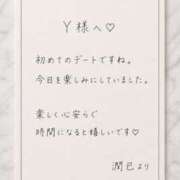 Y様へ♡
初めてのデートですね。
今日を楽しみにしていました。
楽しく心安らぐ
時間になると嬉しいです♡
潤已より